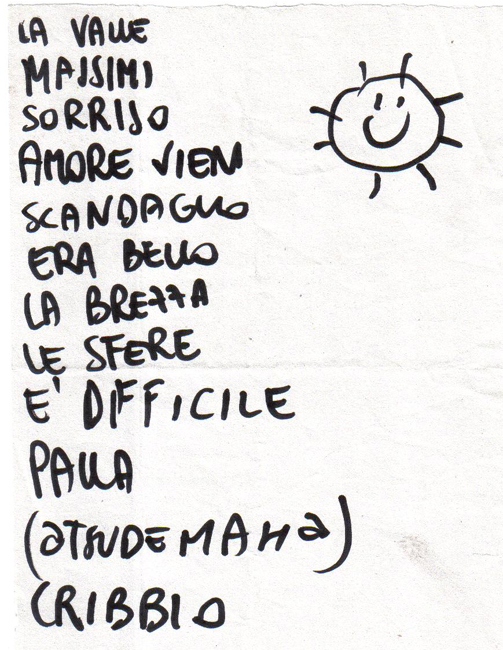 LA VALLE
MASSIMI
SORRISO
AMORE VIENI
SCANDAGLIO
ERA BELLO
LA BREZZA
LE SFERE
E' DIFFICILE
PALLA
CRIBBIO